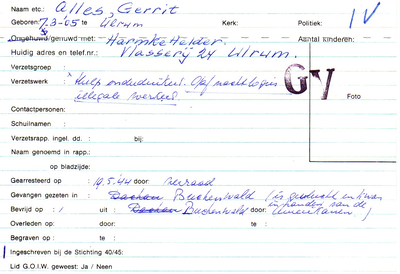 Naam etc.: Alles, Gerrit
Geboren: 7.3-'05 te Ulrum Kerk: Politiek: IV
Ongehuwd/gehuwd met: Harmke Helder Aantal kinderen:
Huidig adres en telef.nr.: Vlasserij 24 Ulrum.
Verzetsgroep :
Verzetswerk : Hulp onderduikers. Gaf nachtlogies
illegale werkers. GV Foto
Contactpersonen:
Schuilnaam :
Verzetsrapp. ingel. dd. : bij:
Naam genoemd in rapp.:
op bladzijde:
Gearresteerd op : 19.5.'44 door: verraad
Gevangen gezeten in : Dachau Buchenwald (is gevlucht en kwam
Bevrijd op : / uit : Dachau Buchenwald door: in handen van de
Amerikanen.)
Overleden op: door: te :
Begraven op : te :
Ingeschreven bij de Stichting 40/45:
Lid G.O.I.W. geweest: Ja / Neen